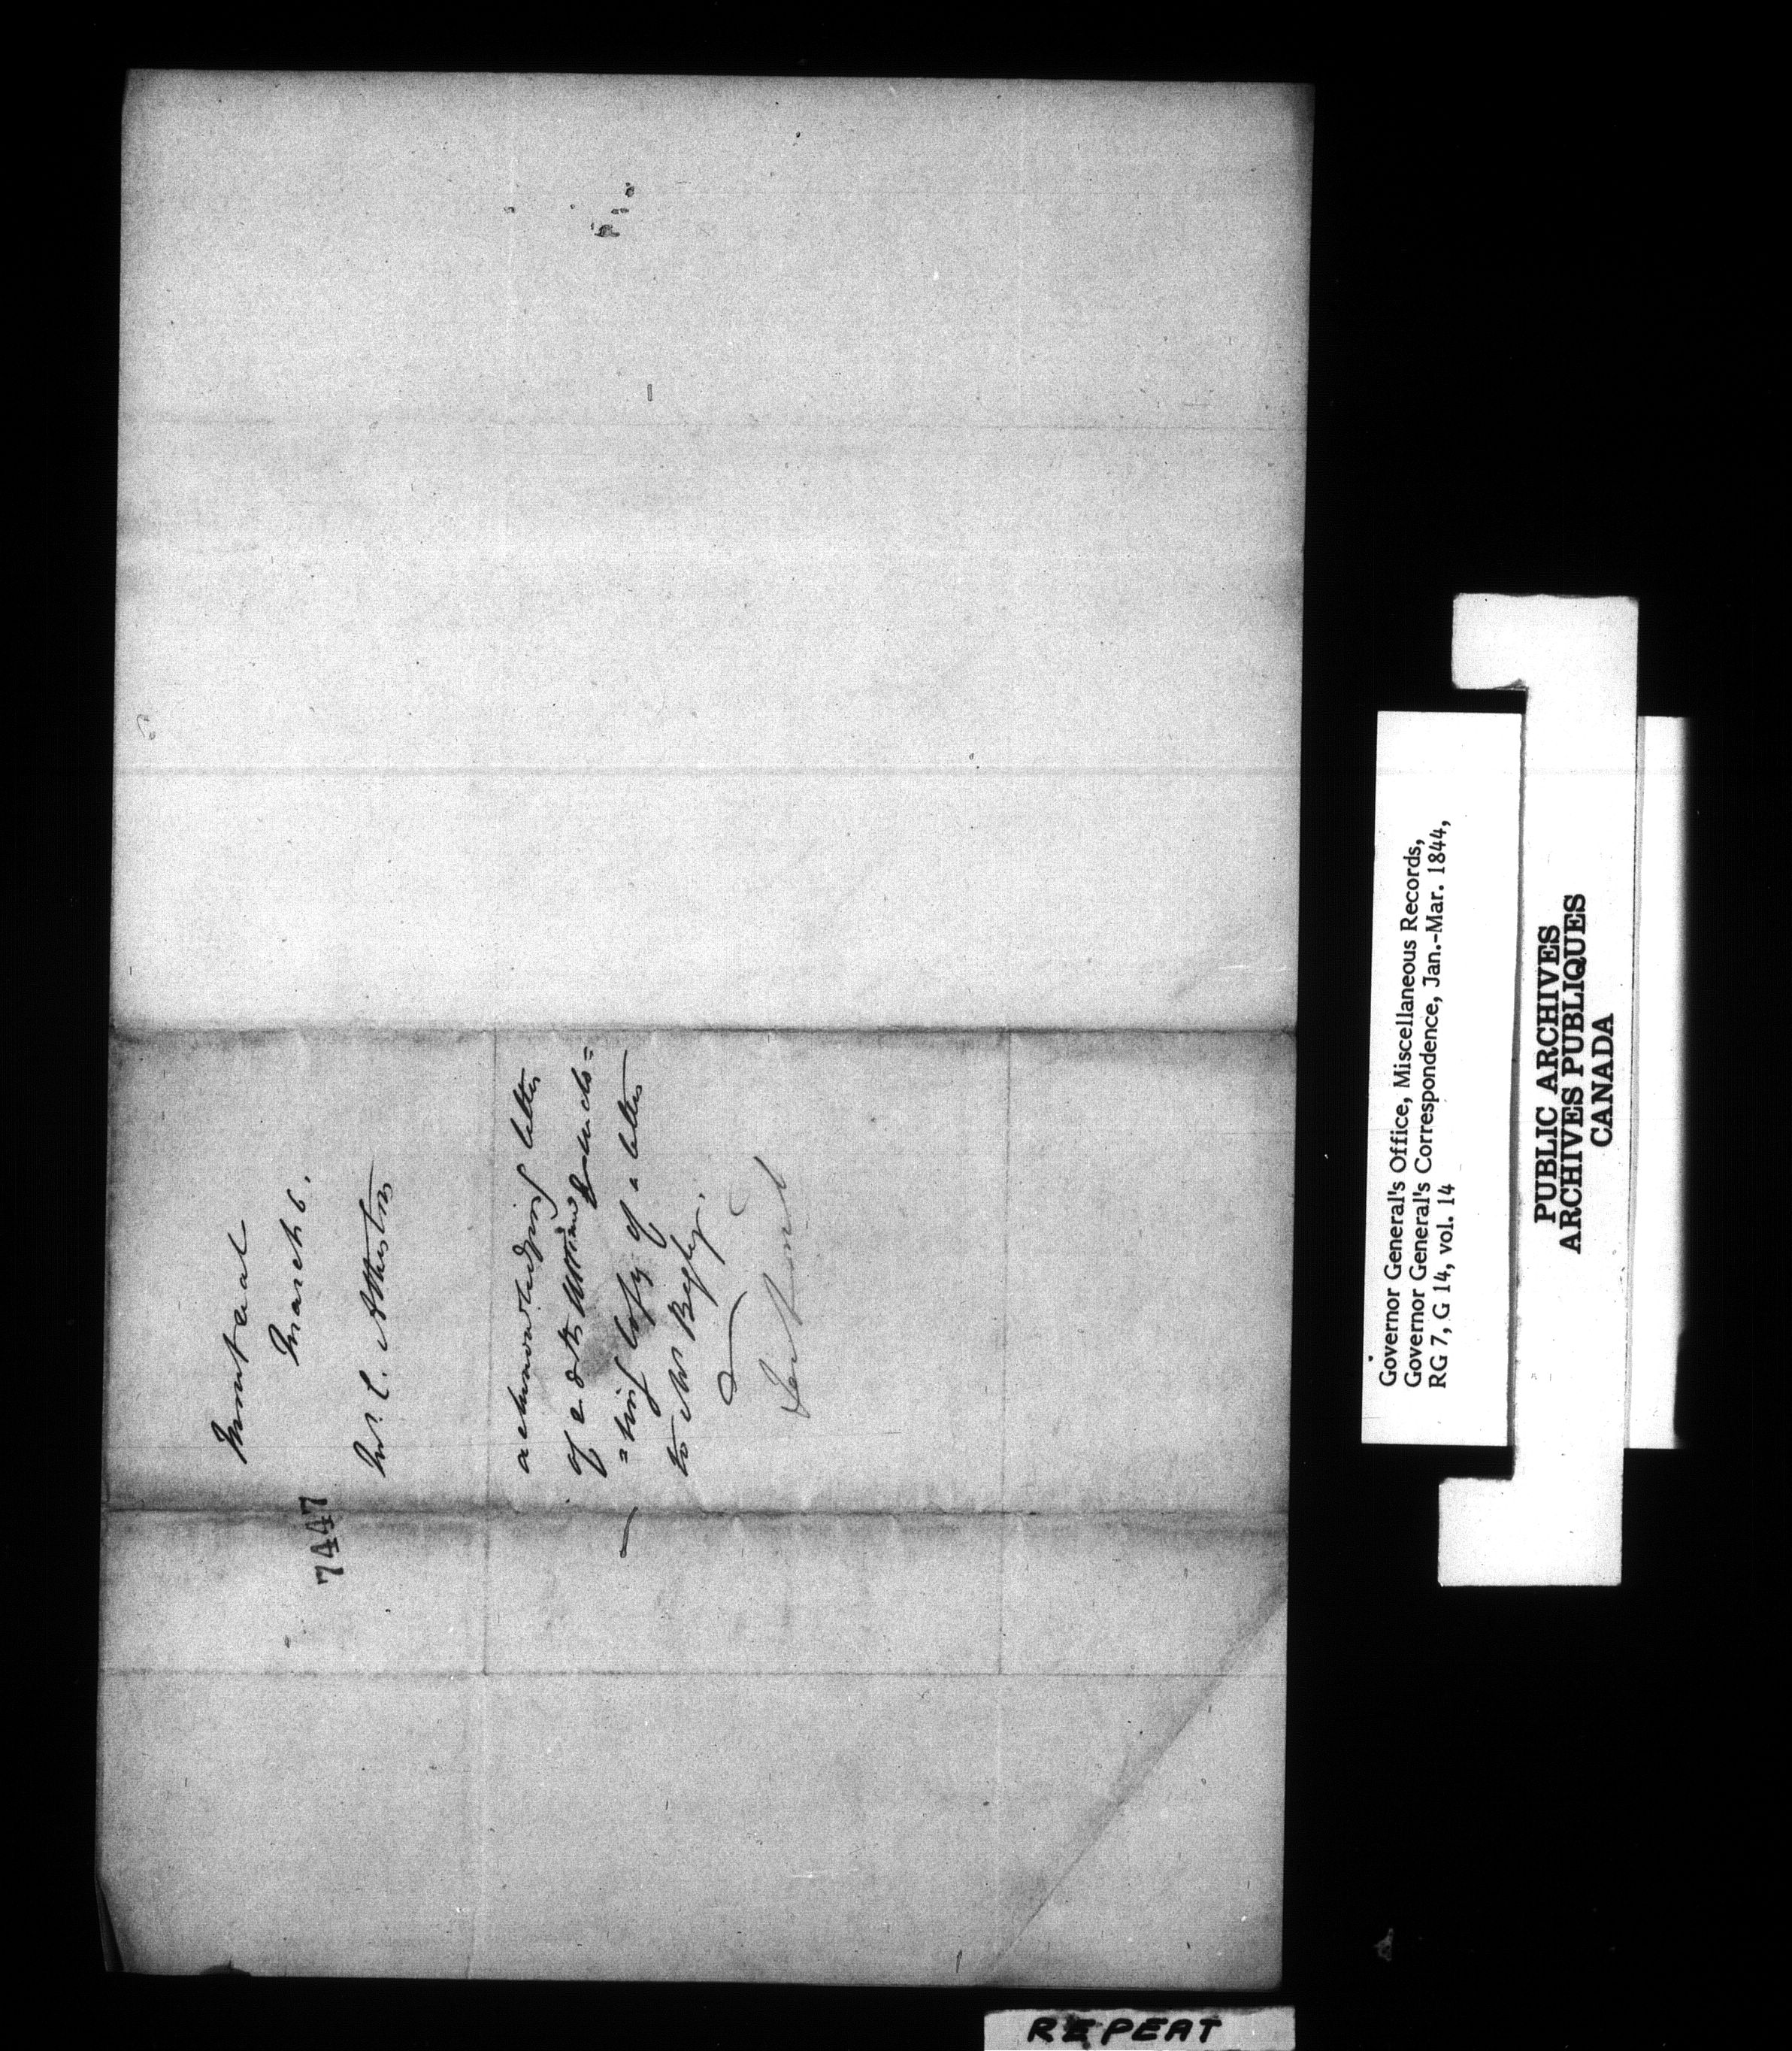 Montreal
March 6.
Mr. C. Atherton
7447
acknowledging letter
of
=ting Copy of a letter
to Mr Begley.
Governor General's Office, Miscellaneous Records,
Governor General's Correspondence, Jan.-Mar. 1844,
RG 7, G 14, vol. 14
PUBLIC ARCHIVES
ARCHIVES PUBLIQUES
CANADA
REPEAT